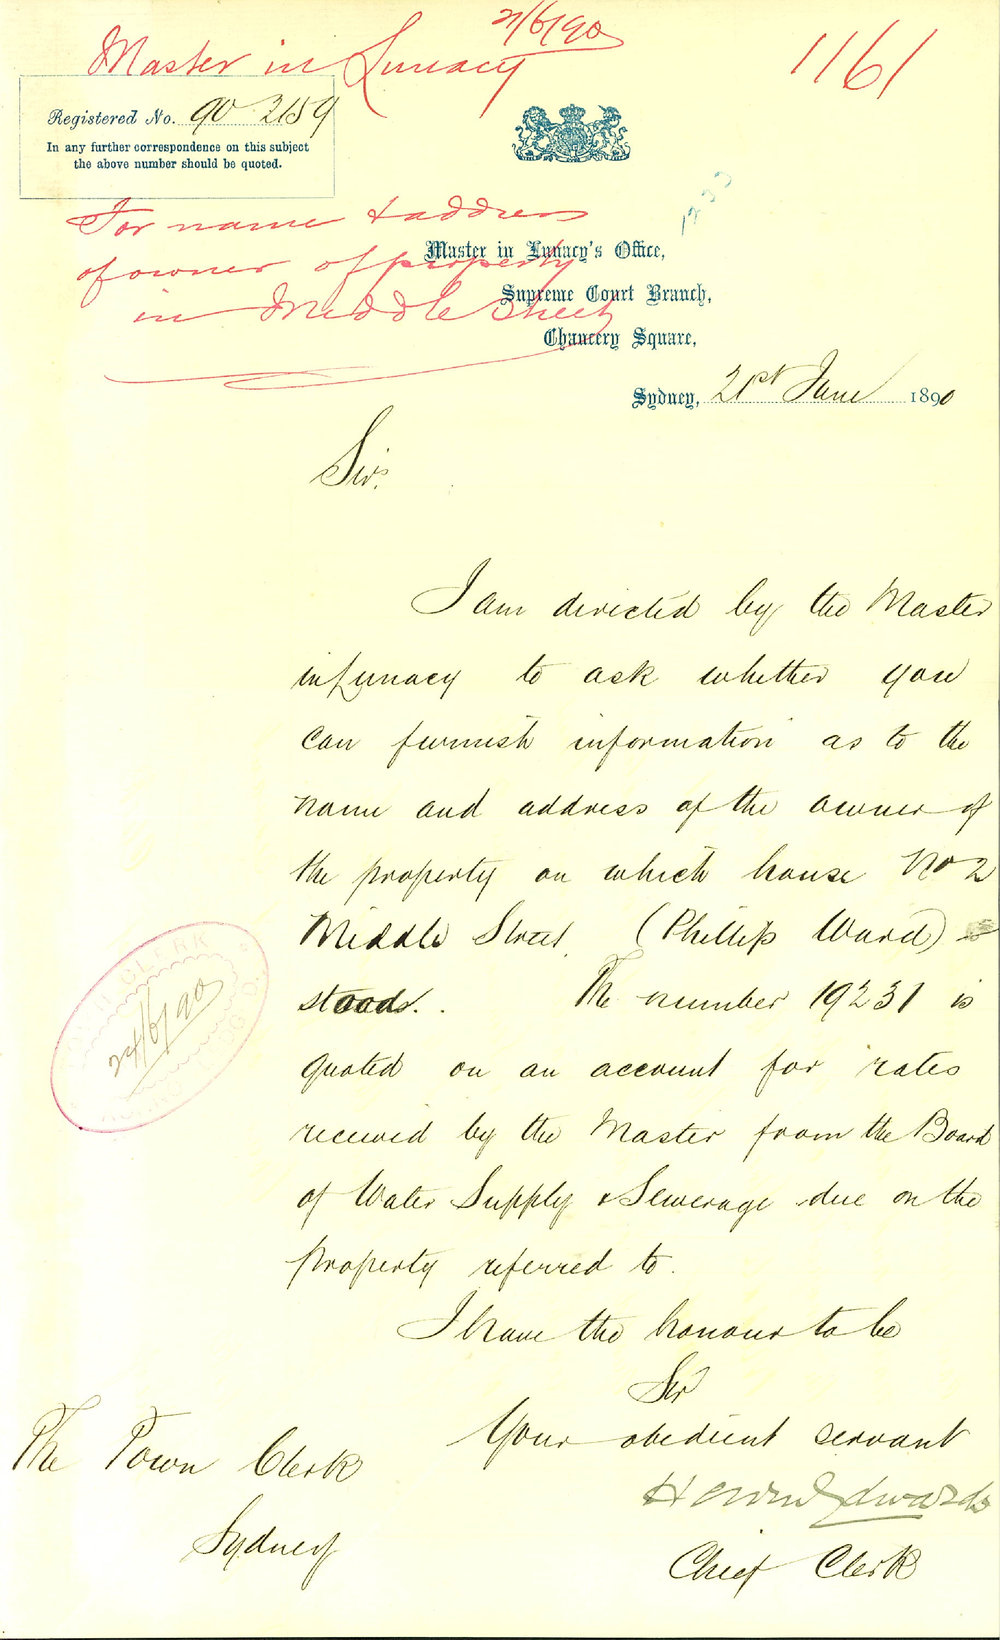 21/6/90
Master in Lunacy
1161
Registered No. 90 2159
In any further correspondence on this subject
the above number should be quoted.
For name & address
of owner of property
in Middle Street
Master in Lunacy's Office,
Supreme Court Branch,
Chancery Square,
Sydney, 21st June 1890
Sir,
I am directed by the Master
in Lunacy to ask whether you
can furnish information as to the
name and address of the owner of
the property on which house No 2
Middle Street (Phillip Ward)
stands. The number 19231 is
quoted on an account for rates
received by the Master from the Board
of Water Supply & Sewerage due on the
property referred to.
I have the honour to be
Sir
Your obedient servant
Edwards
Chief Clerk
The Town Clerk
Sydney
TOWN CLERK
24/6/90